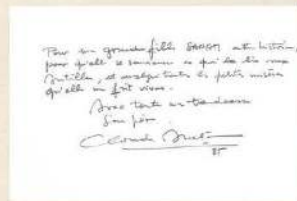 Pour ma grande fille SARAH cette histoire,
pour qu'elle se souvienne ce qui la lie aux
Antilles, et malgré toutes les petites misères
qu'elle me fit vivre.
Avec toute ma tendresse
Son père